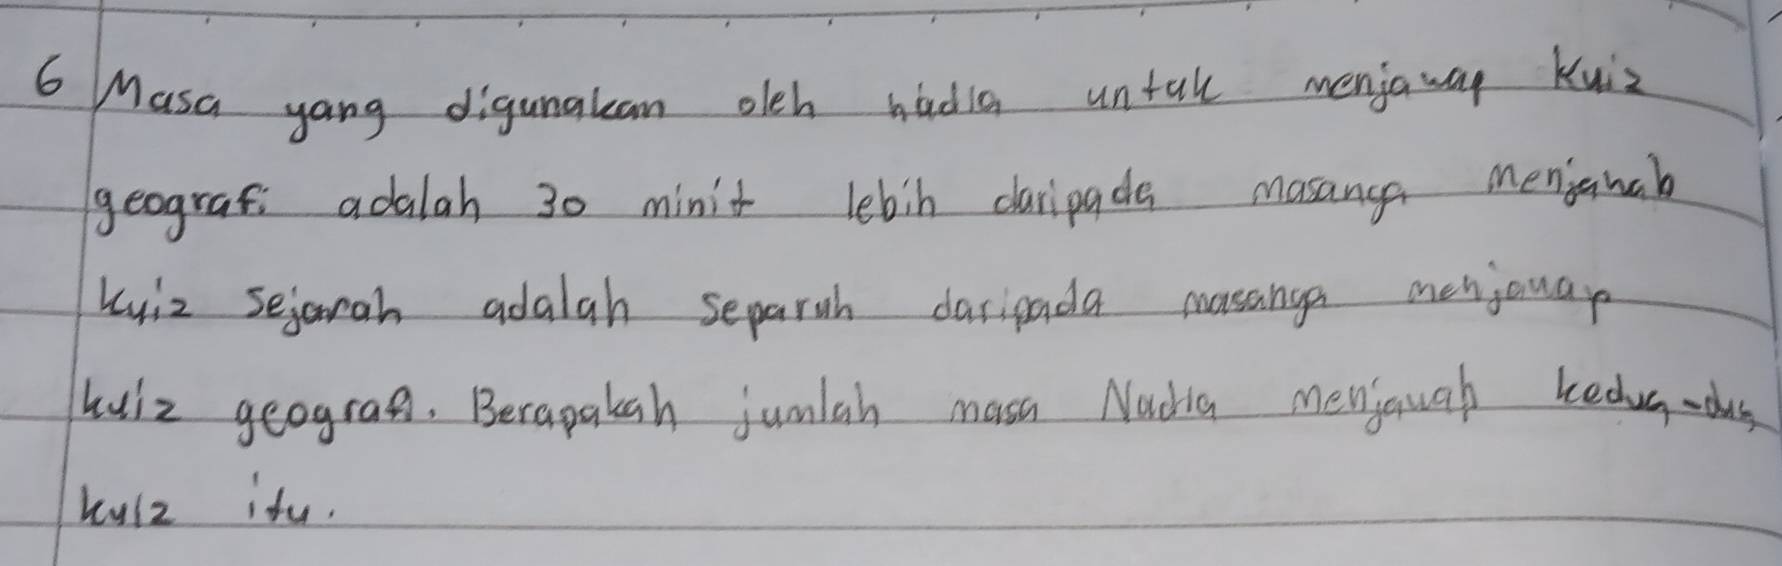 6 Masa yang digunakan oleh nadia untuk menjawap Kuiz
geografi adalah 30 minit lebih daripada masanya menjawab
kuiz sejarah adalah separuh daripada masanya menjawap
kuiz geografi. Berapakah jumlah masa Nadia menjawab kedua-dua
kuiz itu.